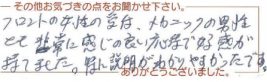 その他お気づきの点をお聞かせ下さい。
フロントの女性の方は、メカニックの男性
とも非常に感じの良い応待で好感が
持てました。特に説明がわかりやすかったです。
ありがとうございました。